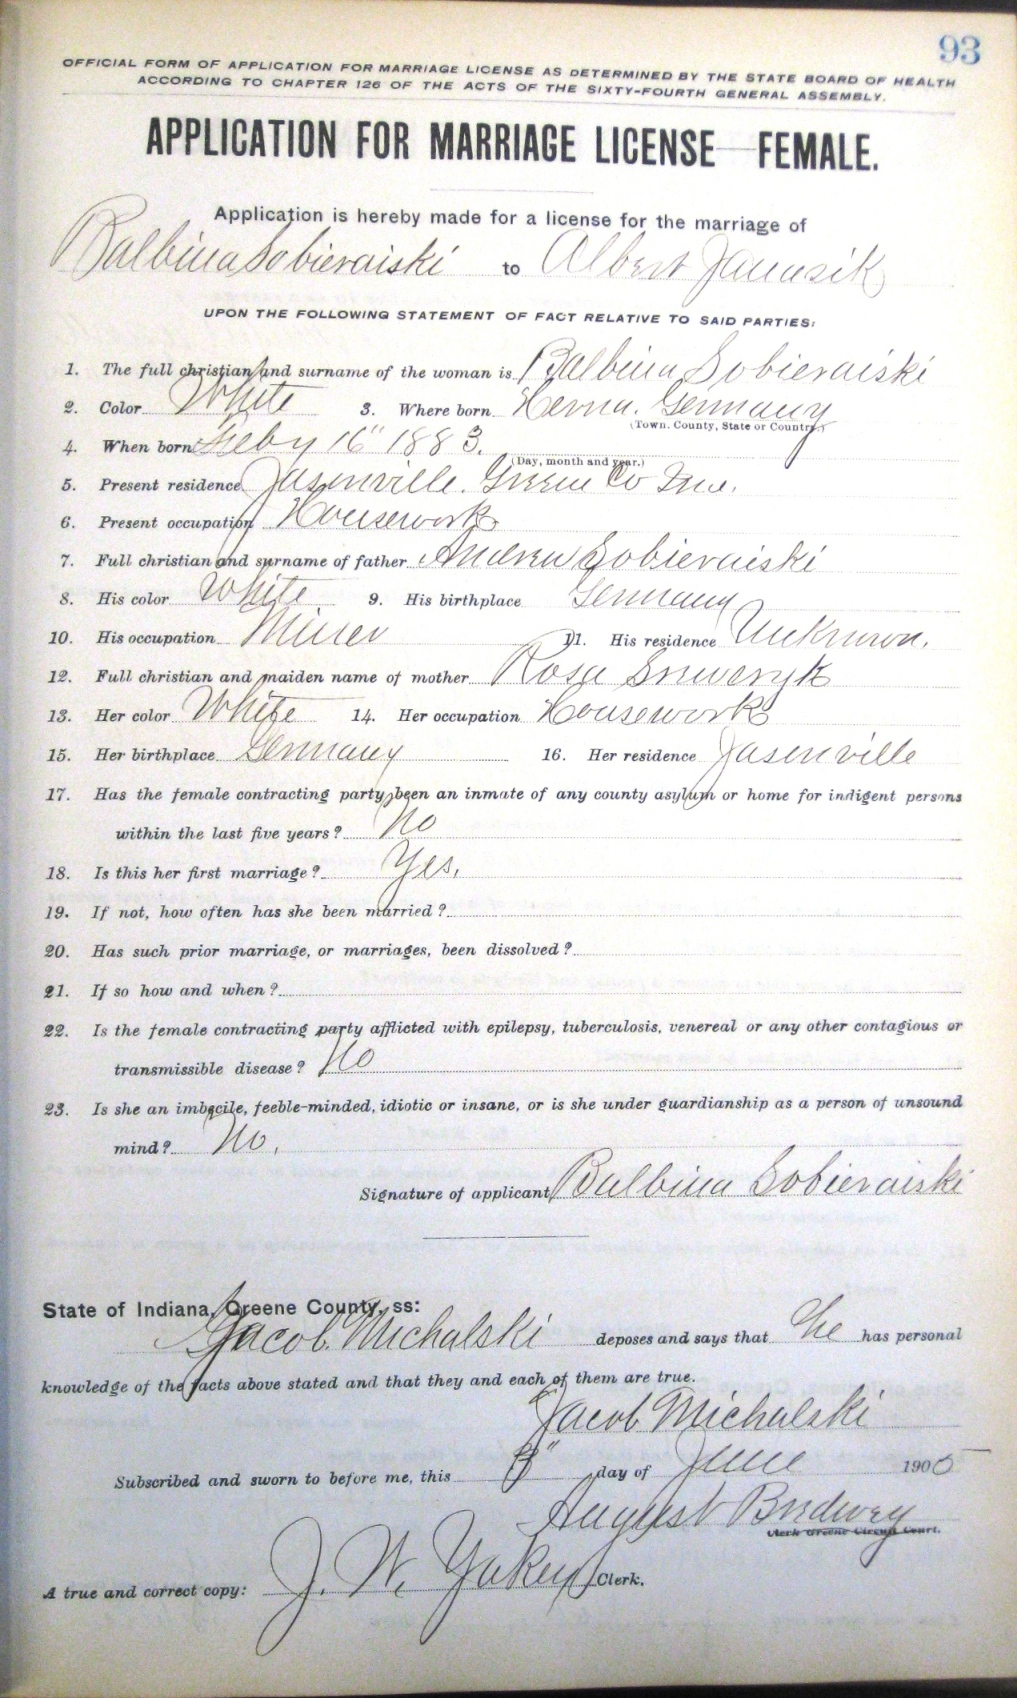 93
OFFICIAL FORM OF APPLICATION FOR MARRIAGE LICENSE AS DETERMINED BY THE STATE BOARD OF HEALTH
ACCORDING TO CHAPTER 126 OF THE ACTS OF THE SIXTY-FOURTH GENERAL ASSEMBLY.
APPLICATION FOR MARRIAGE LICENSE—FEMALE.
Application is hereby made for a license for the marriage of
Balbina Sobieraiski to Albert Janusik
UPON THE FOLLOWING STATEMENT OF FACT RELATIVE TO SAID PARTIES:
1. The full christian and surname of the woman is Balbina Sobieraiski
2. Color White 3. Where born Herna. Germany
(Town, County, State or Country.)
4. When born Feby 16" 1883.
(Day, month and year.)
5. Present residence Jasonville. Greene Co Ind.
6. Present occupation Housework
7. Full christian and surname of father Andrew Sobieraiski
8. His color White 9. His birthplace Germany
10. His occupation Miner 11. His residence Unknown.
12. Full christian and maiden name of mother Rosa
13. Her color White 14. Her occupation Housework
15. Her birthplace Germany 16. Her residence Jasonville
17. Has the female contracting party been an inmate of any county asylum or home for indigent persons
within the last five years? No
18. Is this her first marriage? Yes.
19. If not, how often has she been married?
20. Has such prior marriage, or marriages, been dissolved?
21. If so how and when?
22. Is the female contracting party afflicted with epilepsy, tuberculosis, venereal or any other contagious or
transmissible disease? No
23. Is she an imbecile, feeble-minded, idiotic or insane, or is she under guardianship as a person of unsound
mind? No.
Signature of applicant Balbina Sobieraiski
State of Indiana, Greene County, ss:
Jacob Michalski deposes and says that he has personal
knowledge of the facts above stated and that they and each of them are true.
Jacob Michalski
Subscribed and sworn to before me, this 3" day of June 1905
August
Clerk Greene Circuit Court.
A true and correct copy: J. W. Clerk.